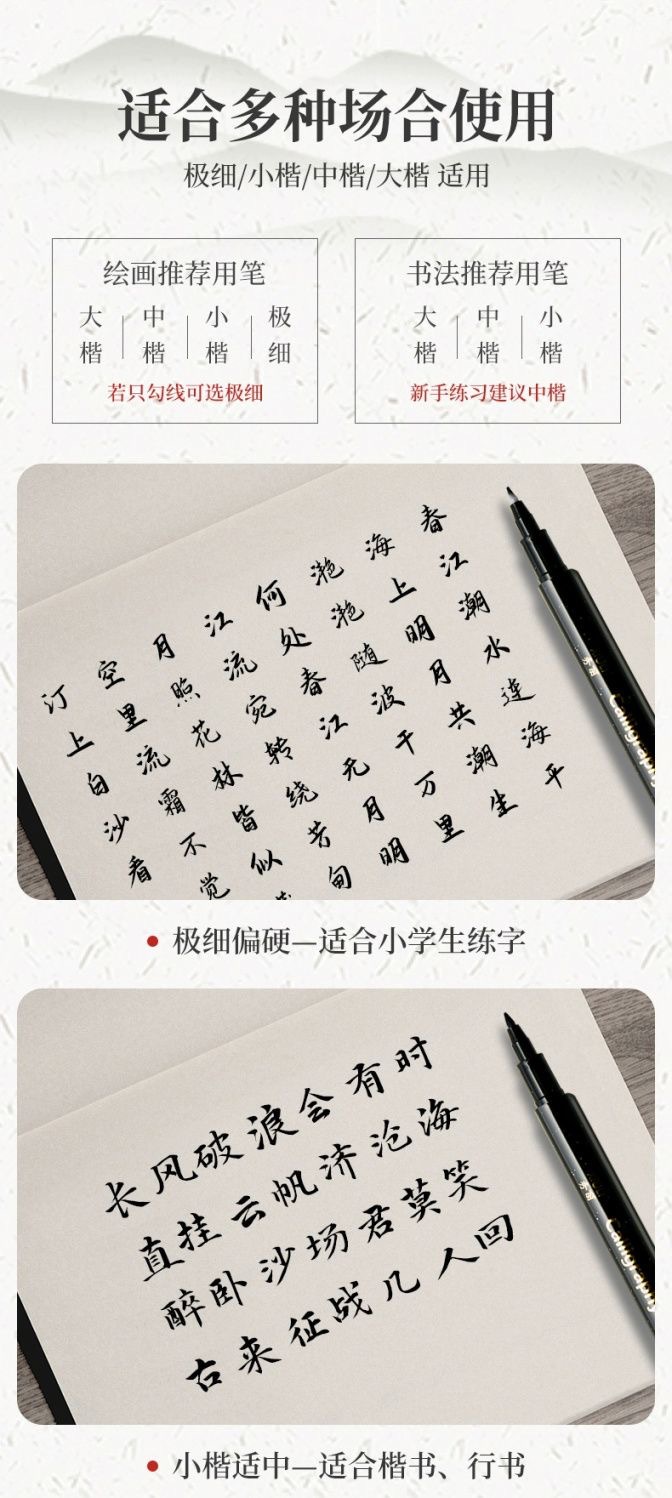 适合多种场合使用
极细/小楷/中楷/大楷 适用
绘画推荐用笔
大楷
中楷
小楷
极细
若只勾线可选极细
书法推荐用笔
大楷
中楷
小楷
新手练习建议中楷
春江潮水连海平
海上明月共潮生
滟滟随波千万里
何处春江无月明
江流宛转绕芳甸
月照花林皆似
空里流霜不觉
汀上白沙看
Calligraphy
极细偏硬—适合小学生练字
长风破浪会有时
直挂云帆济沧海
醉卧沙场君莫笑
古来征战几人回
Calligraphy
小楷适中—适合楷书、行书